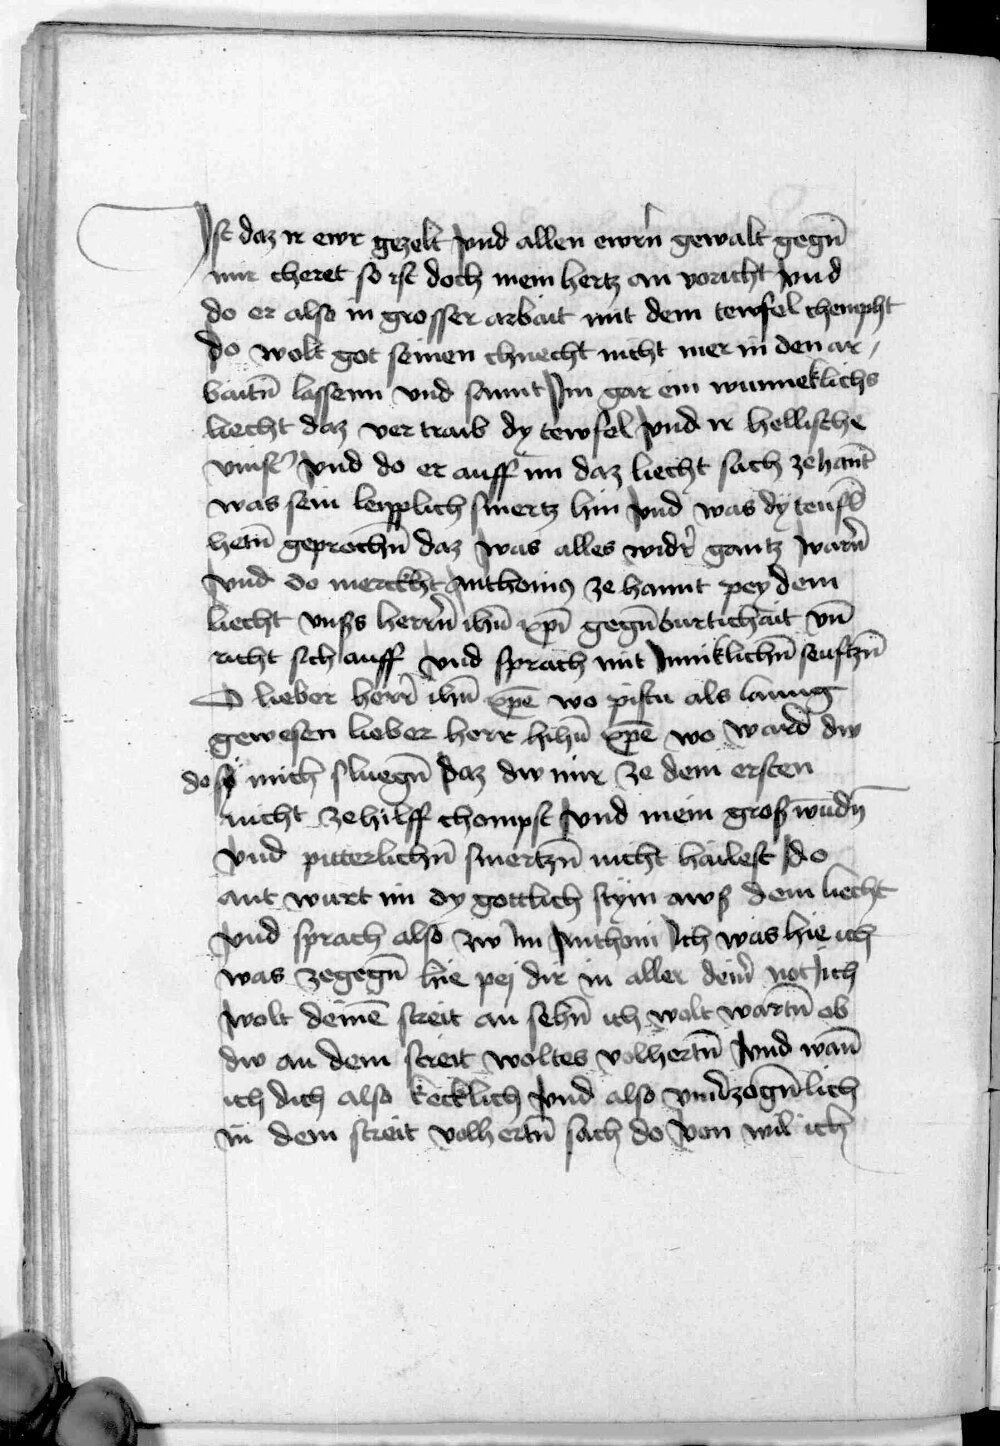 Ist daz ir ewr gezelt vnd allen ewrn̄ gewalt gegn̄
mir cheret so ist doch mein hertz an voricht vnd
do er also in grosser arbait mit dem tewfel chempht
do wolt got seinen chnecht nicht mer in den ar/
baitn̄ lassenn vnd sannt Im gar ein wunneklichs
liecht daz ver traib dy tewfel vnd ir hellische
vinst' vnd do er auff im daz liecht sach ze hant
was sein leypplich smertz hin vnd was dy teufl
hetn̄ geprochn̄ daz was alles wider gantz warn̄
vnd do merckht Anthonius ze hannt pey dem
liecht vnsers herrn̄ ihū xp̄i gegn̄burtichait vn̄
richt sich auff vnd sprach mit Inniklichn̄ seuftzn̄
O lieber herr ihū xp̄e wo pistu als lanng
gewesen lieber herr ihū xp̄e wo ward dw
do sy mich sluegn̄ daz dw mir ze dem ersten
nicht ze hilff chompst vnd mein gross wūdn̄
vnd pitterlichn̄ smertzn̄ nicht hailest do
ant wurt im dy gottlich stym aws dem liecht
vnd sprach also zw im Anthoni Ich was hie ich
was zegegn̄ hie pej dir in aller deinr not ich
wolt deinē streit an sehn̄ ich wolt wartn̄ ob
dw an dem streit woltes volhertn̄ vnd wan̄
ich dich also kecklich vnd also vnuerzogn̄lich
in dem streit volhertn̄ sach do von wil ich